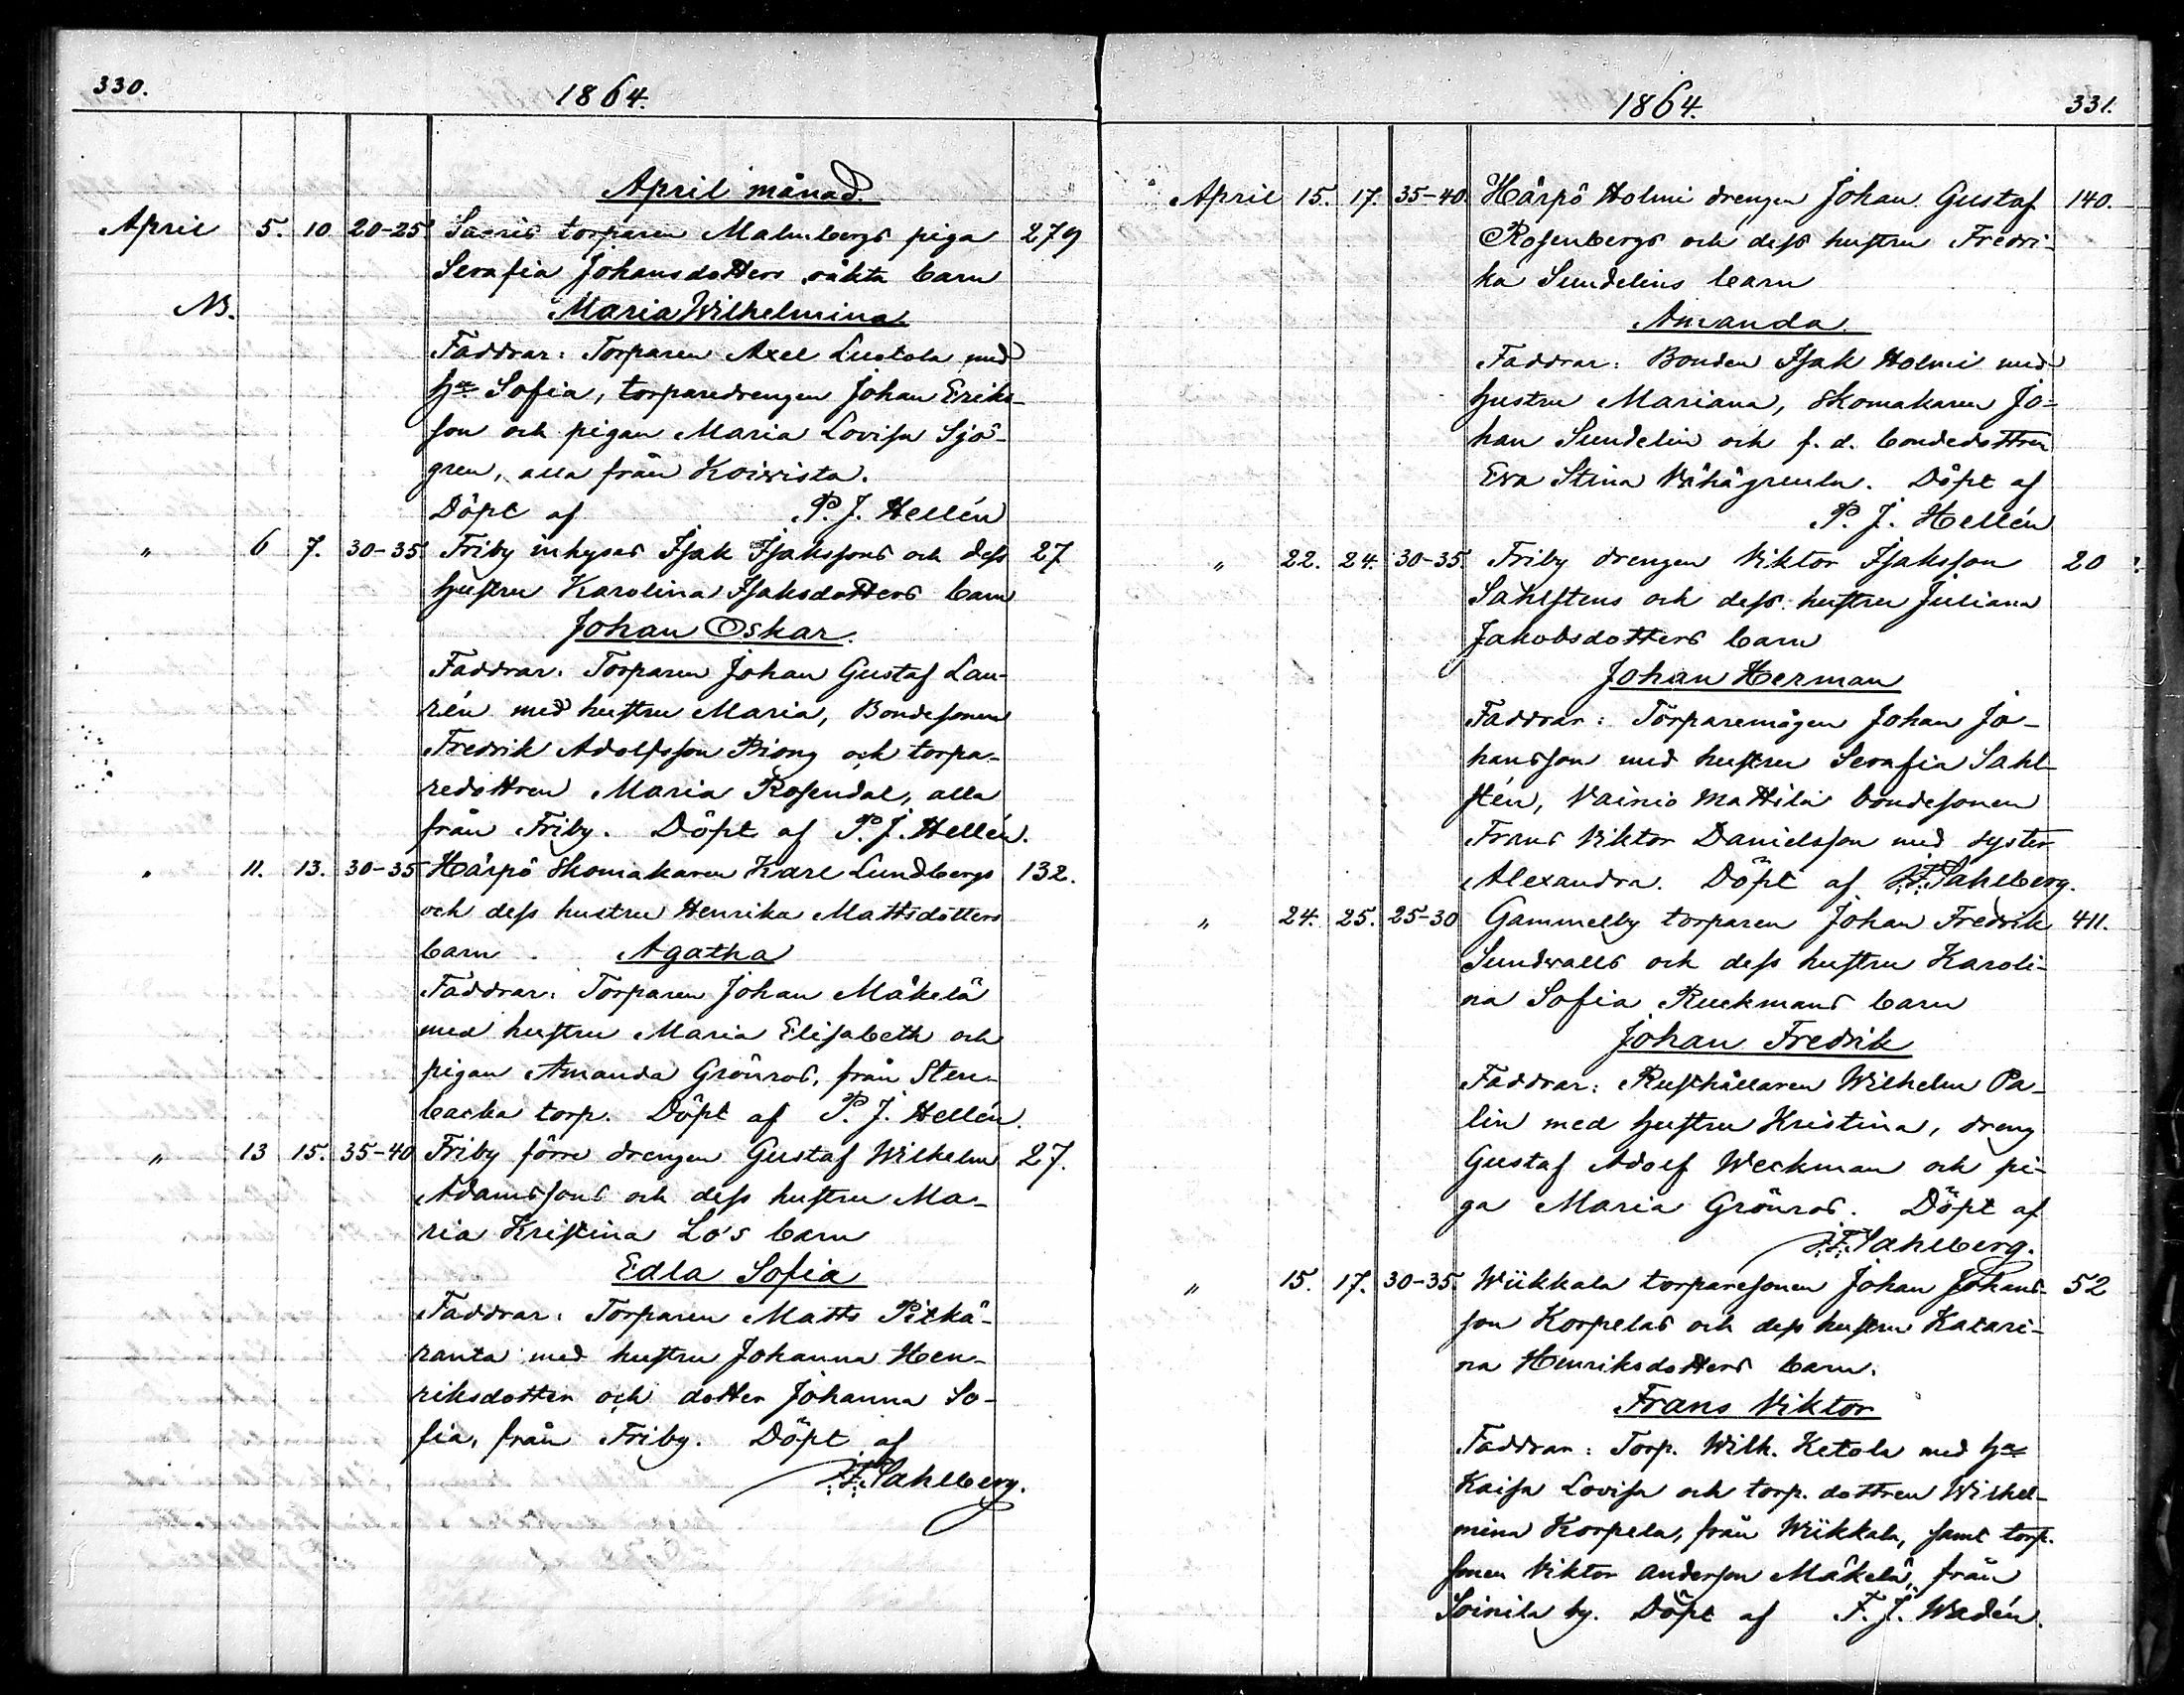 330.
1864.
April månad.
April 5. 10 20-25 Sacris torparen Malmbergs piga 279
Serafia Johansdotters oäkta barn
NB.
Maria Wilhelmina
Faddrar: Torparen Axel Luotola med
hu Sofia, torparedrengen Johan Eriks-
son och pigan Maria Lovisa Sjö-
gren, alla från Koivisto.
Döpt af P. J. Hellén
" 6 7. 30-35 Friby inhyses Isak Isakssons och dess 27
hustru Karolina Isaksdotters barn
Johan Oskar.
Faddrar: Torparen Johan Gustaf Lau-
rén med hustru Maria, Bondesonen
Fredrik Adolfsson Piong och torpa-
redottren Maria Rosendal, alla
från Friby. Döpt af P. J. Hellén.
" 11. 13. 30-35 Härpö Skomakaren Karl Lundbergs 132.
och dess hustru Henrika Mattsdotters
barn Agatha
Faddrar: Torparen Johan Mäkelä
med hustru Maria Elisabeth och
pigan Amanda Grönros, från Sten-
backa torp. Döpt af P. J. Hellén.
" 13 15. 35-40 Friby förre drengen Gustaf Wilhelm 27.
Adamssons och dess hustru Ma-
ria Kristina Lö's barn
Edla Sofia
Faddrar: Torparen Matts Pitkä-
ranta med hustru Johanna Hen-
riksdotter och dotter Johanna So-
fia, från Friby. Döpt af
F. Sahlberg.
1864.
331.
April 15. 17. 35-40 Härpö Holmi drengen Johan Gustaf 140.
Rosenbergs och dess hustru Fredri-
ka Sundelins barn
Amanda.
Faddrar: Bonden Isak Holmi med
hustru Mariana, Skomakaren Jo-
han Sundelin och f. d. bondedottren
Eva Stina Vähägreula. Döpt af
P. J. Hellén
" 22. 24. 30-35. Friby drengen Viktor Isaksson 20
Sahlstens och dess hustru Juliana
Jakobsdotters barn
Johan Herman
Faddrar: Torparemågen Johan Jo-
hansson med hustru Serafia Sahl-
stén, Vainio Mattila bondesonen
Frans Viktor Danielsson med syster
Alexandra. Döpt af F. Sahlberg.
" 24. 25. 25-30 Gammelby torparen Johan Fredrik 411.
Sundvalls och dess hustru Karoli-
na Sofia Ruckmans barn
Johan Fredrik
Faddrar: Rusthållaren Wilhelm Pa-
lin med hustru Kristina, dreng
Gustaf Adolf Weckman och pi-
ga Maria Grönros. Döpt af
F. Sahlberg.
" 15. 17. 30-35. Wiikkala torparesonen Johan Johans- 52
son Korpelas och dess hustru Katari-
na Henriksdotters barn.
Frans Viktor
Faddrar: Torp. Wilh. Ketola med hu
Kaisa Lovisa och torp. dottren Wilhel-
mina Korpela, från Wiikkala, samt torp.
sonen Viktor Anderson Mäkelä, från
Soinila by. Döpt af F. J. Wadén.